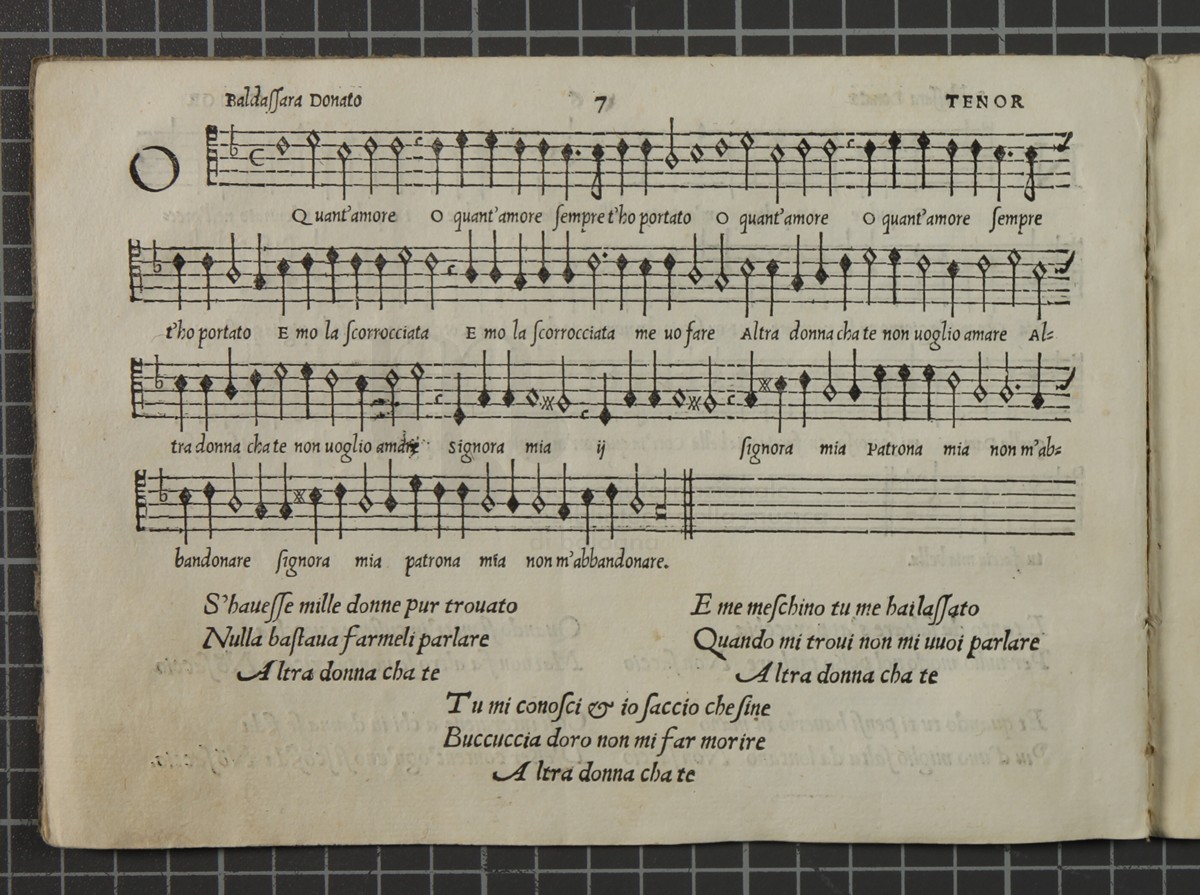 Baldaſſara Donato 7 TENOR
O Quant'amore O quant'amore ſempre t'ho portato O quant'amore O quant'amore ſempre
t'ho portato E mo la ſcorrocciata E mo la ſcorrocciata me uo fare Altra donna cha te non uoglio amare Al-
tra donna cha te non uoglio amare Signora mia ij ſignora mia Patrona mia non m'ab-
bandonare ſignora mia patrona mia non m'abbandonare.
S'haueſſe mille donne pur trouato
Nulla baſtaua farmeli parlare
Altra donna cha te
E me meſchino tu me hai laſſato
Quando mi troui non mi uuoi parlare
Altra donna cha te
Tu mi conoſci & io ſaccio che ſine
Buccuccia doro non mi far morire
Altra donna cha te